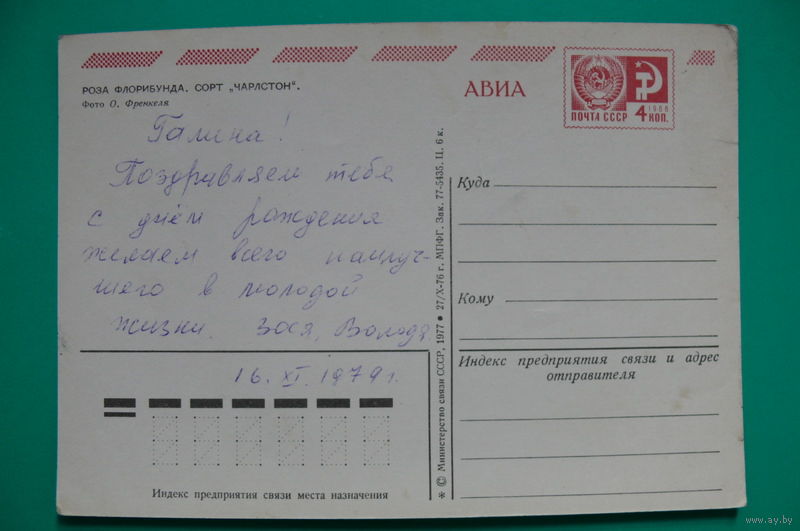 РОЗА ФЛОРИБУНДА. СОРТ „ЧАРЛСТОН“.
Фото О. Френкеля
Галина!
Поздравляем тебя
с днем рождения
желаем всего наилуч-
шего в молодой
жизни. Зося, Володя.
16. XI. 1979 г.
Индекс предприятия связи места назначения
* © Министерство связи СССР, 1977 ● 27/X-76 г. МПФГ. Зак. 77-5435. Ц. 6 к.
АВИА
1966
ПОЧТА СССР 4 КОП.
Куда
Кому
Индекс предприятия связи и адрес
отправителя
www.ay.by